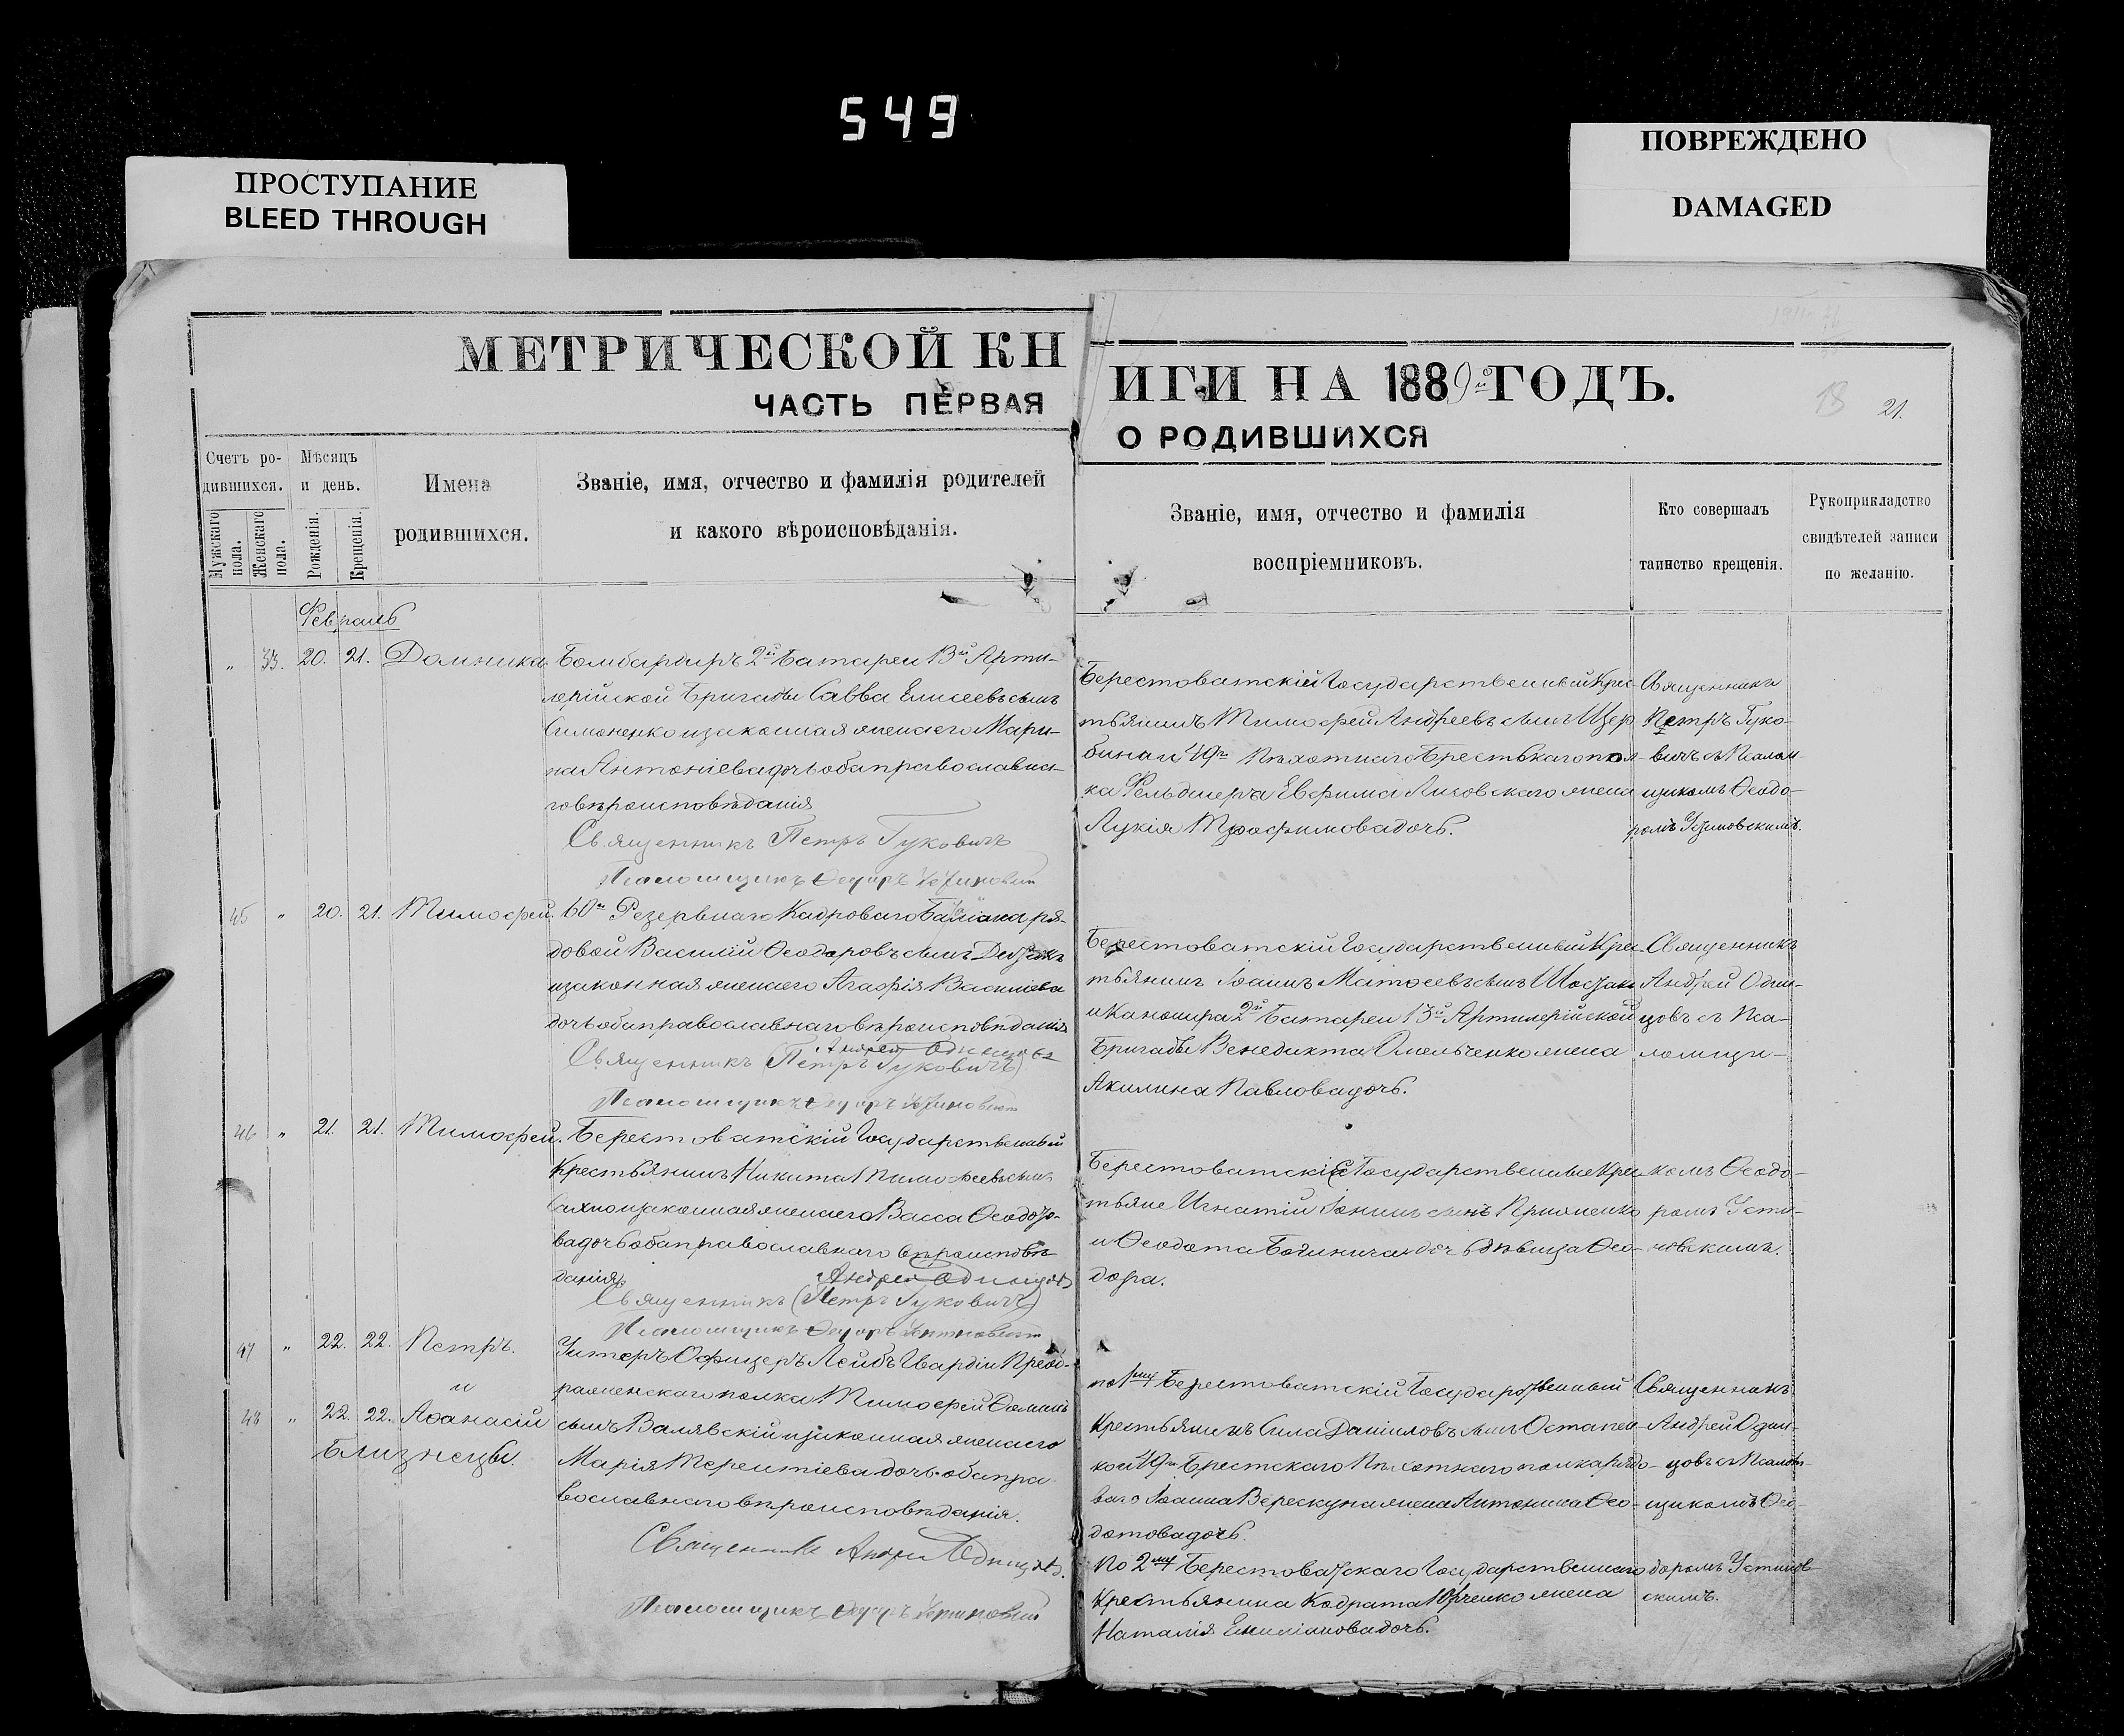 549
ПРОСТУПАНИЕ
BLEED THROUGH
ПОВРЕЖДЕНО
DAMAGED
МЕТРИЧЕСКОЙ КН
ИГИ НА 1889й ГОДЪ.
ЧАСТЬ ПЕРВАЯ
О РОДИВШИХСЯ
18 21.
Счетъ ро-
дившихся.
Мужскаго пола.
Женскаго пола.
Мѣсяцъ
и день.
Рожденія.
Крещенія.
Имена
родившихся.
Званіе, имя, отчество и фамилія родителей
и какого вѣроисповѣданія.
Званіе, имя, отчество и фамилія
воспріемниковъ.
Кто совершалъ
таинство крещенія.
Рукоприкладство
свидѣтелей записи
по желанію.
Февраль
" 33. 20. 21. Домника
Бомбардиръ 2й Батареи 13й Арти-
лерійской Бригады Савва Елисеевъ сынъ
Симоненко и законная жена его Мари-
на Антоніева дочь оба православна-
го вѣроисповѣданія
Священникъ Петръ Гуковичъ
Псаломщикъ Ѳеодоръ
Берестоватскій Государственный Крес-
тьянинъ Тимофей Андреевъ сынъ Щер-
бина и 49го Пѣхотнаго Брестскаго пол-
ка Фельдшера Евфима Лисовскаго жена
Лукія Трофимова дочь.
Священникъ
Петръ Гуко-
вичъ съ Псалом-
щикомъ Ѳеодо-
ромъ Устимовскимъ.
45 " 20. 21. Тимофей.
60го Резервнаго Кадроваго Баталіона ря-
довой Василій Ѳеодоровъ сынъ
и законная жена его Агафія Василіева
дочь оба православнаго вѣроисповѣданія
Андрей Одинцовъ
Священникъ (Петръ Гуковичъ)
Псаломщикъ Ѳеодоръ
Берестоватскій Государственный Крес-
тьянинъ Іоаннъ Матѳеевъ сынъ
и Канонира 2й Батареи 13й Артилерійской
Бригады Венедикта Омельченко жена
Акилина Павлова дочь.
Священникъ
Андрей Один-
цовъ съ Пса-
ломщи-
46 " 21. 21. Тимофей.
Берестоватскій Государственный
Крестьянинъ Никита Тимофеевъ сынъ
Сахно и законная жена его Васса Ѳеодоро-
ва дочь оба православнаго вѣроисповѣ-
данія.
Андрей Одинцовъ
Священникъ (Петръ Гуковичъ)
Псаломщикъ Ѳеодоръ
Берестоватскіе Государственные Крес-
тьяне Игнатій Іонинъ сынъ
и Ѳеодота дочь дѣвица Ѳео-
дора.
комъ Ѳеодо-
ромъ Усти-
новскимъ.
47 " 22. 22. Петръ.
и
48 " 22. 22. Аѳанасій
Близнецы.
Унтеръ Офицеръ Лейбъ Гвардіи Преоб-
раженскаго полка Тимофей Ѳоминъ
сынъ Валявскій и законная жена его
Марія Терентіева дочь оба пра-
вославнаго вѣроисповѣданія.
Священникъ Андрей Одинцовъ.
Псаломщикъ Ѳеодоръ
по 1му Берестоватскій Государственный
Крестьянинъ Сила Даниловъ сынъ Остапен-
ко и 49го Брестскаго Пѣхотнаго полка рядо-
ваго Іоанна Верескуна жена Антонина Ѳео-
дотова дочь.
По 2му Берестоватскаго Государственнаго
Крестьянина Кодрата Юрченко жена
Наталія Емиліанова дочь.
Священникъ
Андрей Один-
цовъ съ Псалом-
щикомъ Ѳео-
доромъ Устинов-
скимъ.